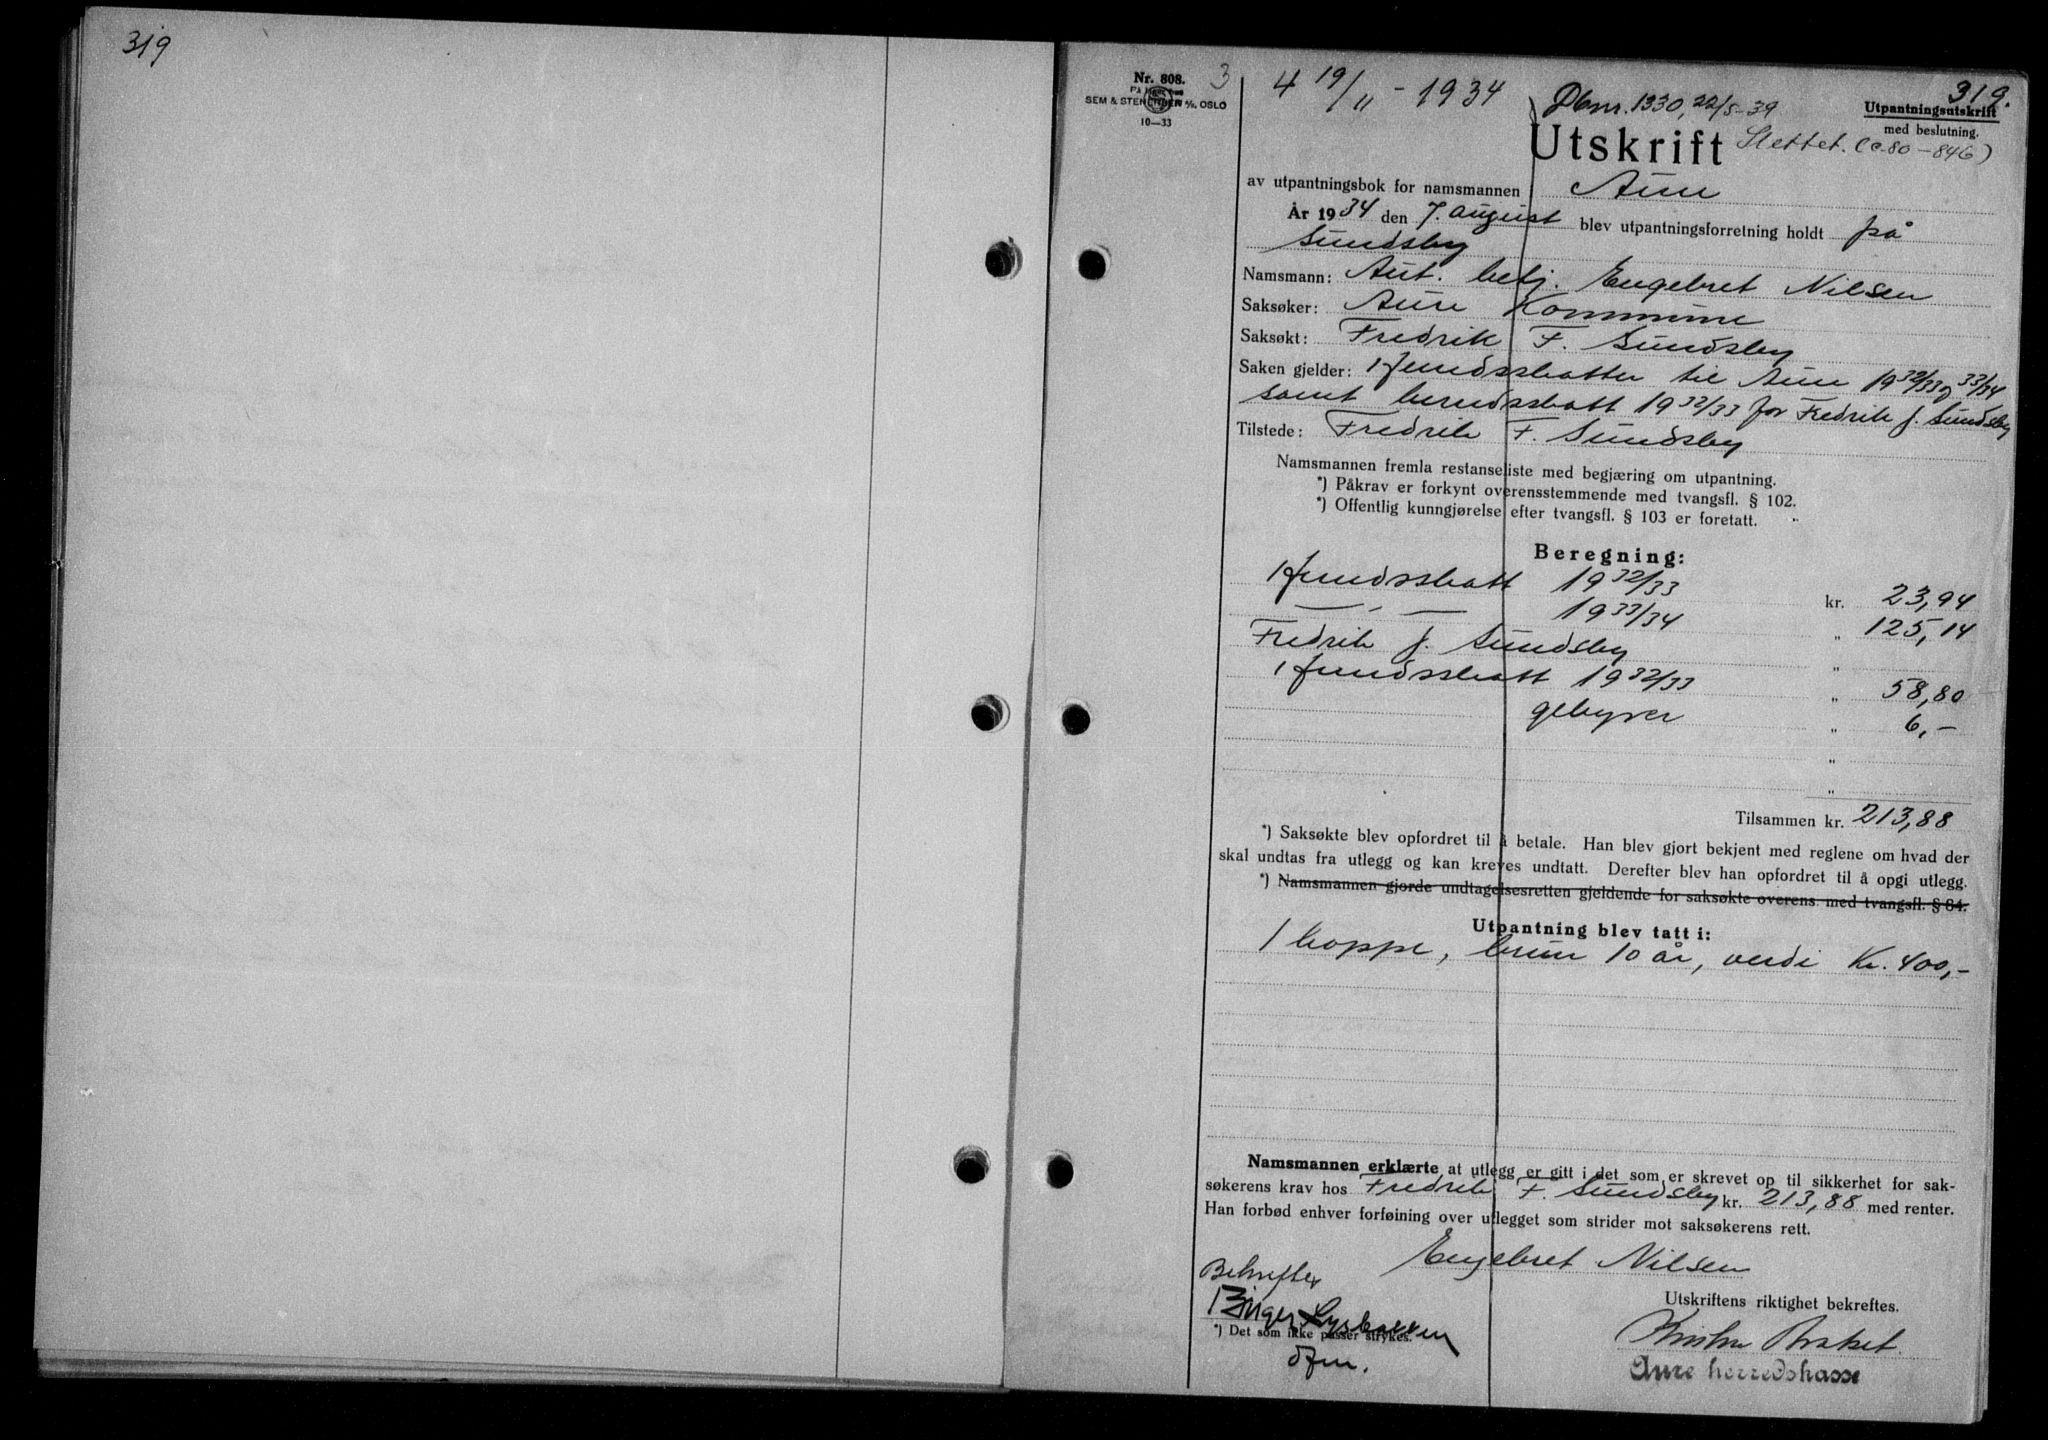 319
Nr. 808.
SEM & STENERSEN A/S. OSLO
10—33
3
4 19/11 - 1934
319.
Dbnr. 1330, 22/5-39
Utpantningsutskrift
med beslutning.
Utskrift
Slettet. (c. 80 - 846)
av utpantningsbok for namsmannen Aure
År 1934 den 7. august blev utpantningsforretning holdt på
Sundsby
Namsmann: Aut. betj. Engebret Nilsen
Saksøker: Aure Kommune
Saksøkt: Fredrik F. Sundsby
Saken gjelder: Herredsskatter til Aure 1932/33 og 33/34
samt herredsskatt 1932/33 for Fredrik J. Sundsby
Tilstede: Fredrik F. Sundsby
Namsmannen fremla restanseliste med begjæring om utpantning.
*) Påkrav er forkynt overensstemmende med tvangsfl. § 102.
*) Offentlig kunngjørelse efter tvangsfl. § 103 er foretatt.
Beregning:
Herredsskatt 1932/33 kr. 23,94
— " — 1933/34 " 125,14
Fredrik J. Sundsby "
Herredsskatt 1932/33 " 58,80
gebyrer " 6,-
"
"
Tilsammen kr. 213,88
*) Saksøkte blev opfordret til å betale. Han blev gjort bekjent med reglene om hvad der
skal undtas fra utlegg og kan kreves undtatt. Derefter blev han opfordret til å opgi utlegg.
*) Namsmannen gjorde undtagelsesretten gjeldende for saksøkte overens. med tvangsfl. § 84.
Utpantning blev tatt i:
1 hoppe, brun 10 år, verdi Kr. 400,-
Namsmannen erklærte at utlegg er gitt i det som er skrevet op til sikkerhet for sak-
søkerens krav hos Fredrik F. Sundsby kr. 213,88 med renter.
Han forbød enhver forføining over utlegget som strider mot saksøkerens rett.
Engebret Nilsen
Bekrefter
Utskriftens riktighet bekreftes.
Birger Lysbakken
*) Det som ikke passer strykes.
dfm.
Aure herredskasse